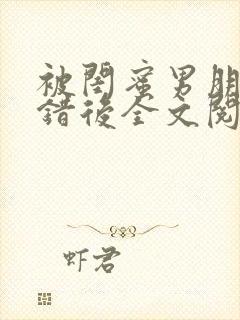 被閨蜜男朋
錯後全文閱
虾君